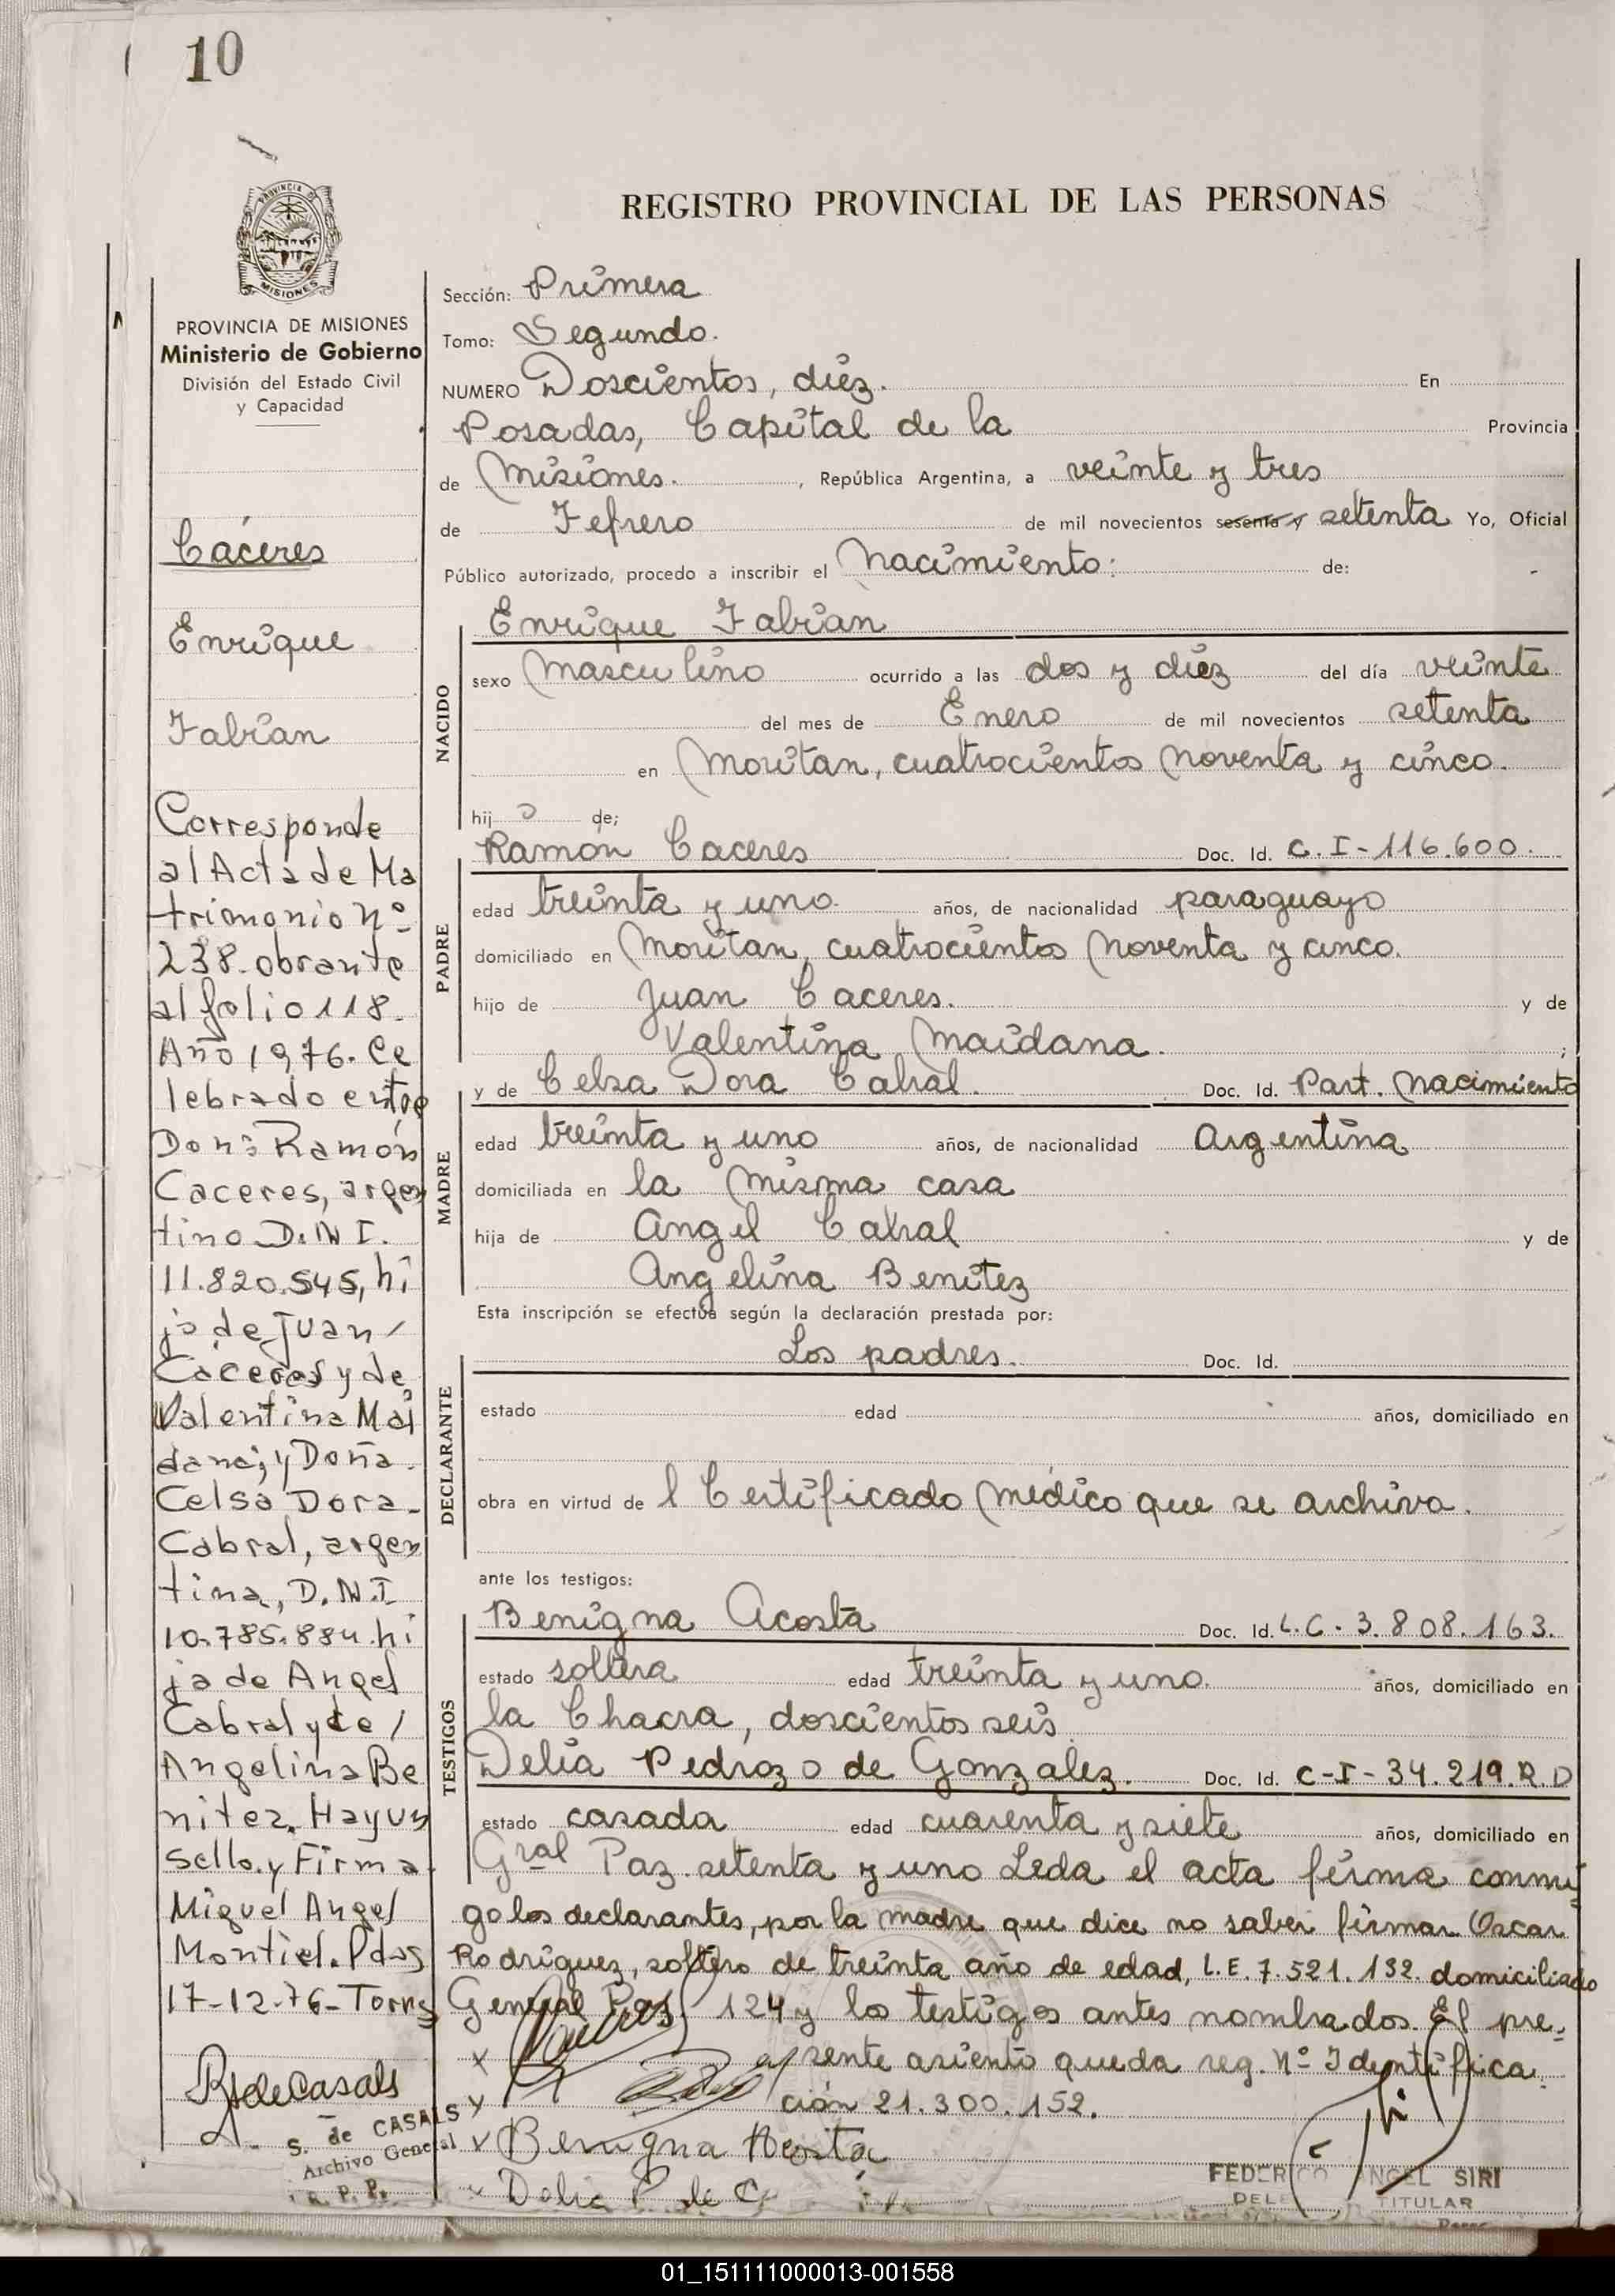 10
REGISTRO PROVINCIAL DE LAS PERSONAS
PROVINCIA DE MISIONES
Ministerio de Gobierno
División del Estado Civil
y Capacidad
Cáceres
Enrique
Fabian
Corresponde
al Acta de Ma
trimonio Nº
238. obrante
al folio 118.
Año 1976. Ce
lebrado entre
Don: Ramón
Caceres, argen
tino D.N.I.
11.820.545, hi
jo de Juan /
Caceres y de
Valentina Mai
dana; y Doña
Celsa Dora
Cabral, argen
tina, D.N.I
10.785.884. hi
ja de Angel
Cabral y de /
Angelina Be
nitez. Hay un
sello y Firma
Miguel Angel
Montiel. Pdas
17-12-76-
S. de CASALS
Archivo General
R. P. P.
Sección: Primera
Tomo: Segundo.
NUMERO Doscientos, diez. En
Posadas, Capital de la Provincia
de Misiones. , República Argentina, a veinte y tres
de Febrero de mil novecientos sesenta y setenta Yo, Oficial
Público autorizado, procedo a inscribir el Nacimiento: de:
Enrique Fabian
NACIDO
sexo Masculino ocurrido a las dos y diez del día veinte
del mes de Enero de mil novecientos setenta
en Moritan, cuatrocientos Noventa y cinco.
hij o de;
Ramón Caceres Doc. Id. C. I - 116.600.
PADRE
edad treinta y uno años, de nacionalidad paraguayo
domiciliado en Moritan, cuatrocientos Noventa y cinco.
hijo de Juan Caceres. y de
Valentina Maidana. ;
y de Celsa Dora Cabral. Doc. Id. Part. Nacimiento
MADRE
edad treinta y uno años, de nacionalidad Argentina
domiciliada en la Misma casa
hija de Angel Cabral y de
Angelina Benitez
Esta inscripción se efectúa según la declaración prestada por:
Los padres. Doc. Id.
DECLARANTE
estado edad años, domiciliado en
obra en virtud de l Certificado Médico que se archiva.
ante los testigos:
Benigna Acosta Doc. Id. L.C. 3.808.163.
TESTIGOS
estado soltera edad treinta y uno. años, domiciliado en
la Chacra, doscientos seis
Delia Pedrozo de Gonzalez. Doc. Id. C-I-34.219.R.D
estado casada edad cuarenta y siete años, domiciliado en
Gral Paz setenta y uno Leda el acta firma conmi-
go los declarantes, por la madre que dice no saber firmar Oscar
Rodríguez, soltero de treinta año de edad, L.E. 7.521.132. domiciliado
General Paz. 124 y los testigos antes nombrados. El pre-
sente asiento queda reg. Nº Identifica
ción 21.300.152.
Benigna Acosta
Delia P de
FEDERICO ANGEL SIRI
TITULAR
01_151111000013-001558